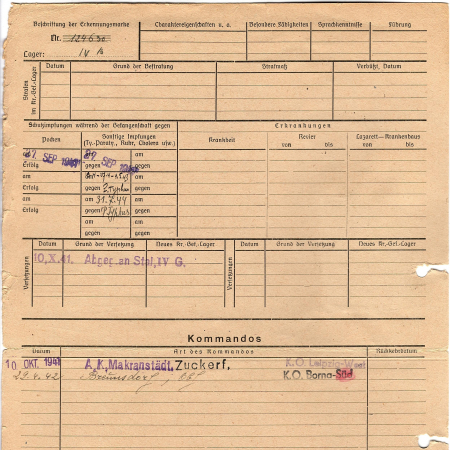 Beschriftung der Erkennungsmarke
Nr. 124630
Lager: IV B
Charaktereigenschaften u. a.
Besondere Fähigkeiten
Sprachkenntnisse
Führung
Strafen im Kr.-Gef.-Lager
Datum
Grund der Bestrafung
Strafmaß
Verbüßt, Datum
Schutzimpfungen während der Gefangenschaft gegen
Erkrankungen
Pocken
Sonstige Impfungen (Ty.-Paraty., Ruhr, Cholera usw.)
Krankheit
Revier
von bis
Lazarett - Krankenhaus
von bis
am SEP 1941
am SEP
Erfolg
gegen
am
gegen
am
Erfolg
gegen Typhus
am
am 31.7.44
Erfolg
gegen Typhus
am
gegen
am
gegen
Versetzungen
Datum
Grund der Versetzung
Neues Kr.-Gef.-Lager
Versetzungen
Datum
Grund der Versetzung
Neues Kr.-Gef.-Lager
10.X.41. Abgeg. an Stal. IV G.
Kommandos
Datum
Art des Kommandos
Rückkehrdatum
10 OKT. 1941 A. K. Makranstädt, Zuckerf. K.O. Leipzig-West
29.4.42 K.O. Borna-Süd